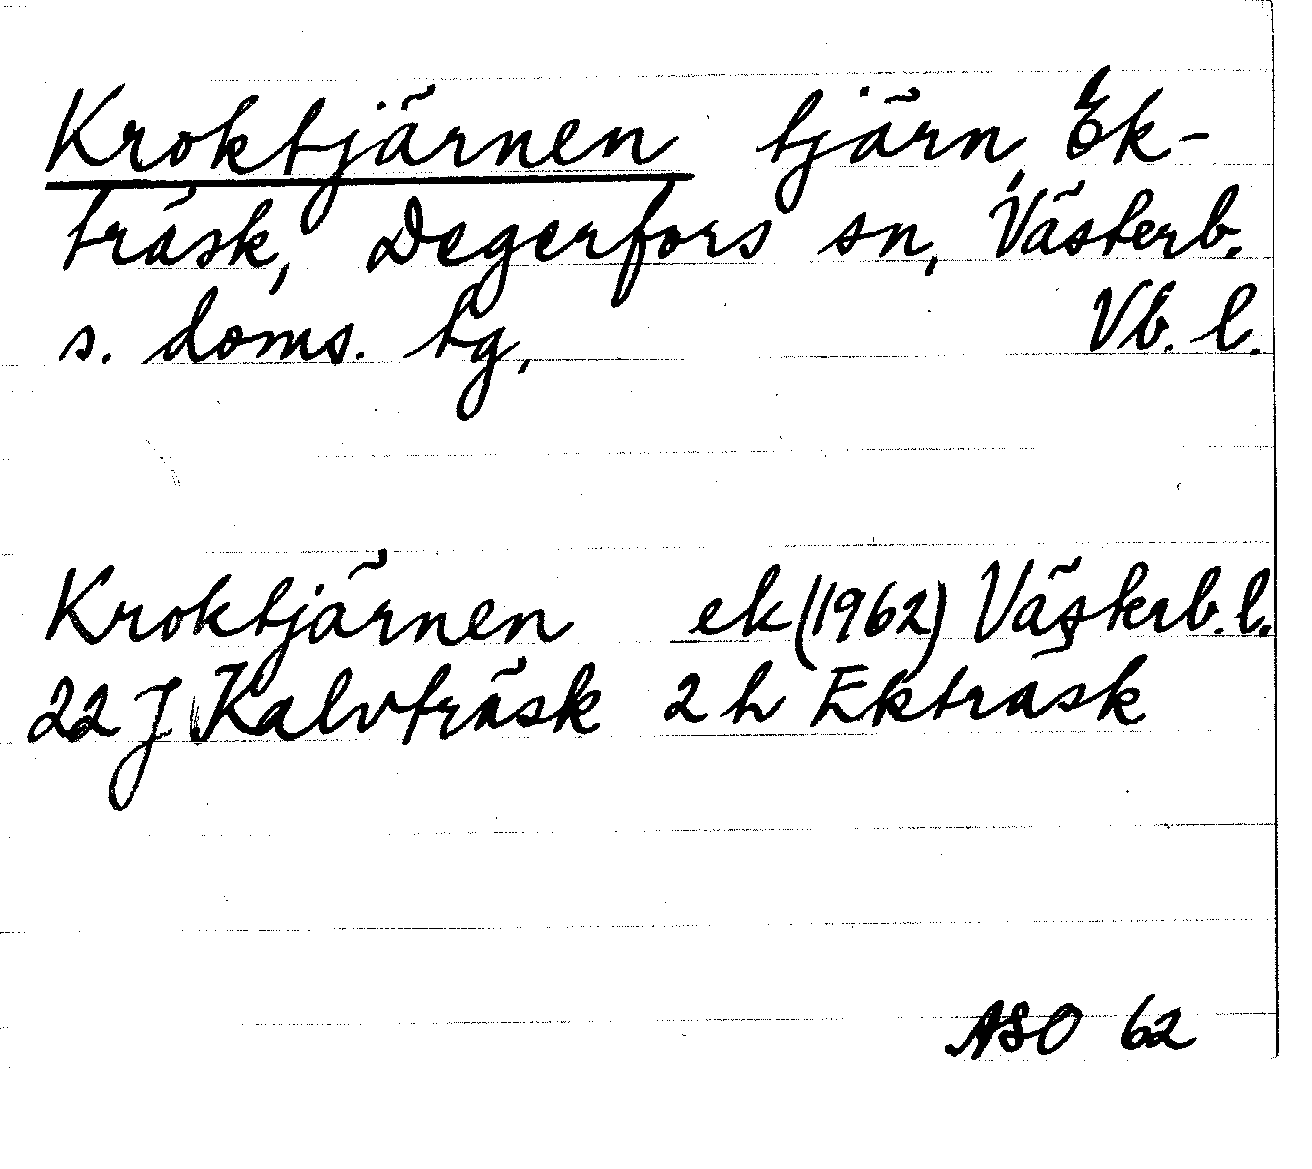 Kroktjärnen tjärn, Ek-
träsk, Degerfors sn, Västerb.
s. doms. tg, Vb. l.
Kroktjärnen ek (1962) Västerb. l.
22 J Kalvträsk 2 h Ekträsk
ASO 62